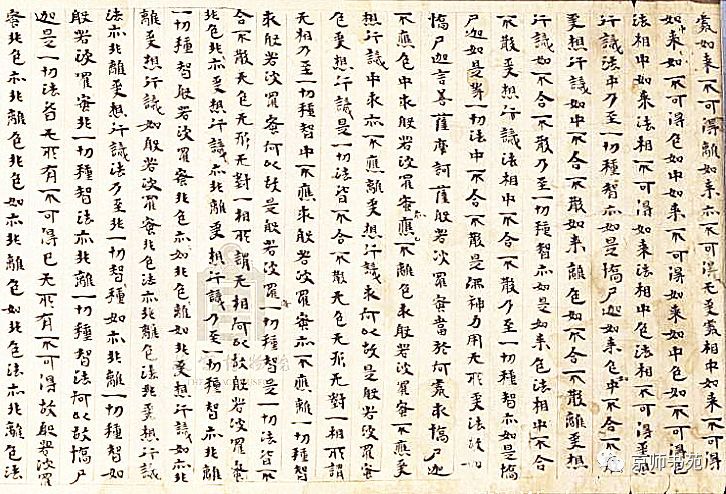 處如来不可得離如来亦不可得无受處相中如来不可得
如来如不可得色如中如来不可得如来如中色如不可得色
法相中如来法相不可得如来法相中色法相不可得受想
行識法中乃至一切種智亦如是憍尸迦如来色如中不合
受想行識如中不合不散如来離色如不合不散離受想
行識如不合不散乃至一切種智亦如是如来色法相中不合
不散受想行識法相中不合不散乃至一切種智亦如是憍
尸迦如是等一切法中不合不散是佛神力用无所受法故如
憍尸迦言菩薩摩訶薩般若波羅蜜當於何處求憍尸迦
不應色中求般若波羅蜜應不離色求般若波羅蜜不應受
想行識中求亦不應離受想行識求何以故是般若波羅蜜
色受想行識是一切法皆不合不散无色无形无對一相所謂
无相乃至一切種智中不應求般若波羅蜜亦不應離一切種智
求般若波羅蜜何以故是般若波羅蜜一切種智是一切法皆不
合不散无色无形无對一相所謂无相何以故般若波羅蜜
非色非亦受想行識亦非離受想行識乃至一切種智亦非離
一切種智般若波羅蜜非色如亦非離色如非受想行識如亦非
離受想行識如般若波羅蜜非色法亦非離色法非受想行識
法亦非離受想行識法乃至非一切種智如亦非離一切種智如
般若波羅蜜非一切種智法亦非離一切種智法何以故憍尸
迦是一切法皆无所有不可得已无所有不可得故般若波羅
蜜非色亦非離色非色如亦非離色如非色法亦非離色法
京师书苑